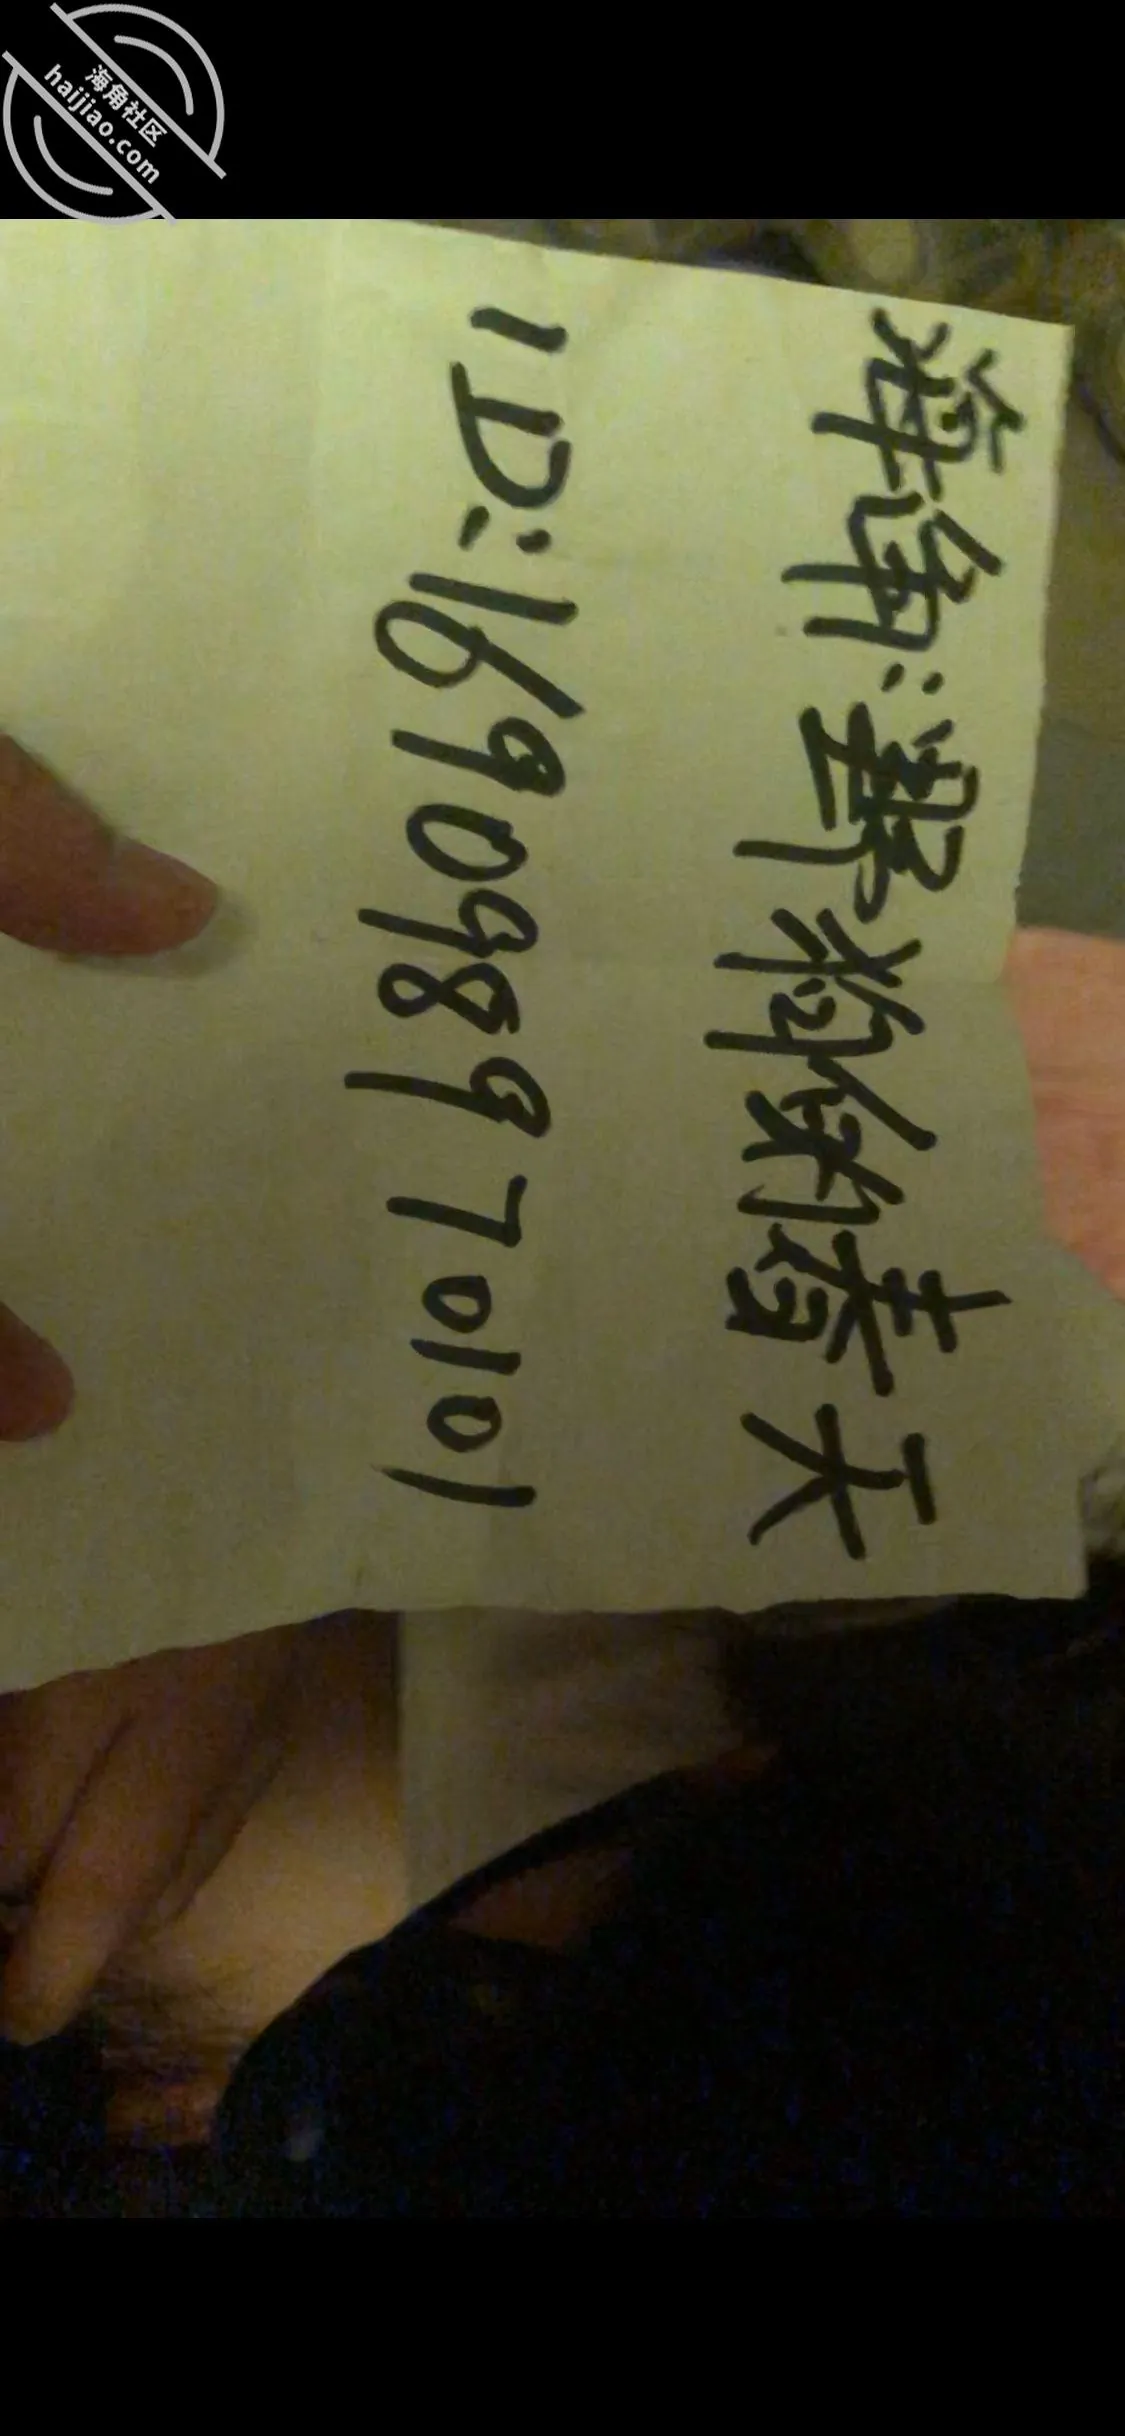 海角社区
haijiao.com
海角:野狗的春天
ID:169098970101